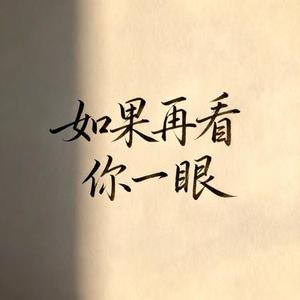 如果再看
你一眼